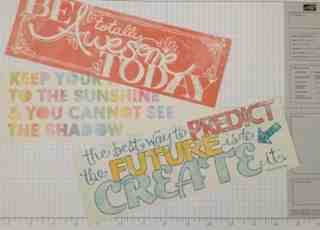 BE totally
Awesome
TODAY
KEEP YOUR
TO THE SUNSHINE
& YOU CANNOT SEE
THE SHADOW
the best way to PREDICT
the FUTURE is to
CREATE it.